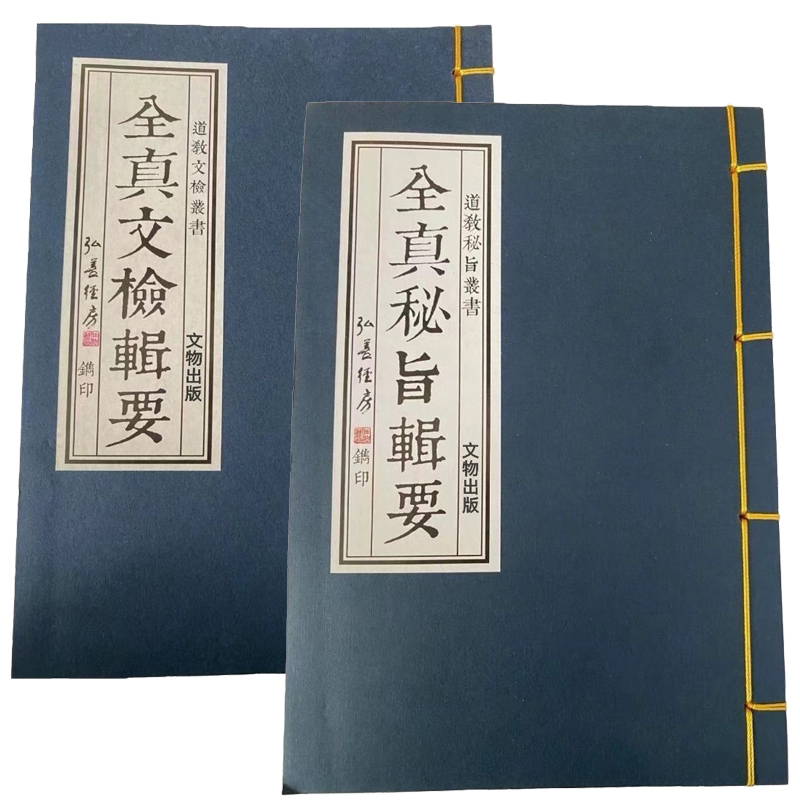 道教文檢叢書
文物出版
全真文檢輯要
弘善經房
鐫印
道教秘旨叢書
文物出版
全真秘旨輯要
弘善經房
鐫印